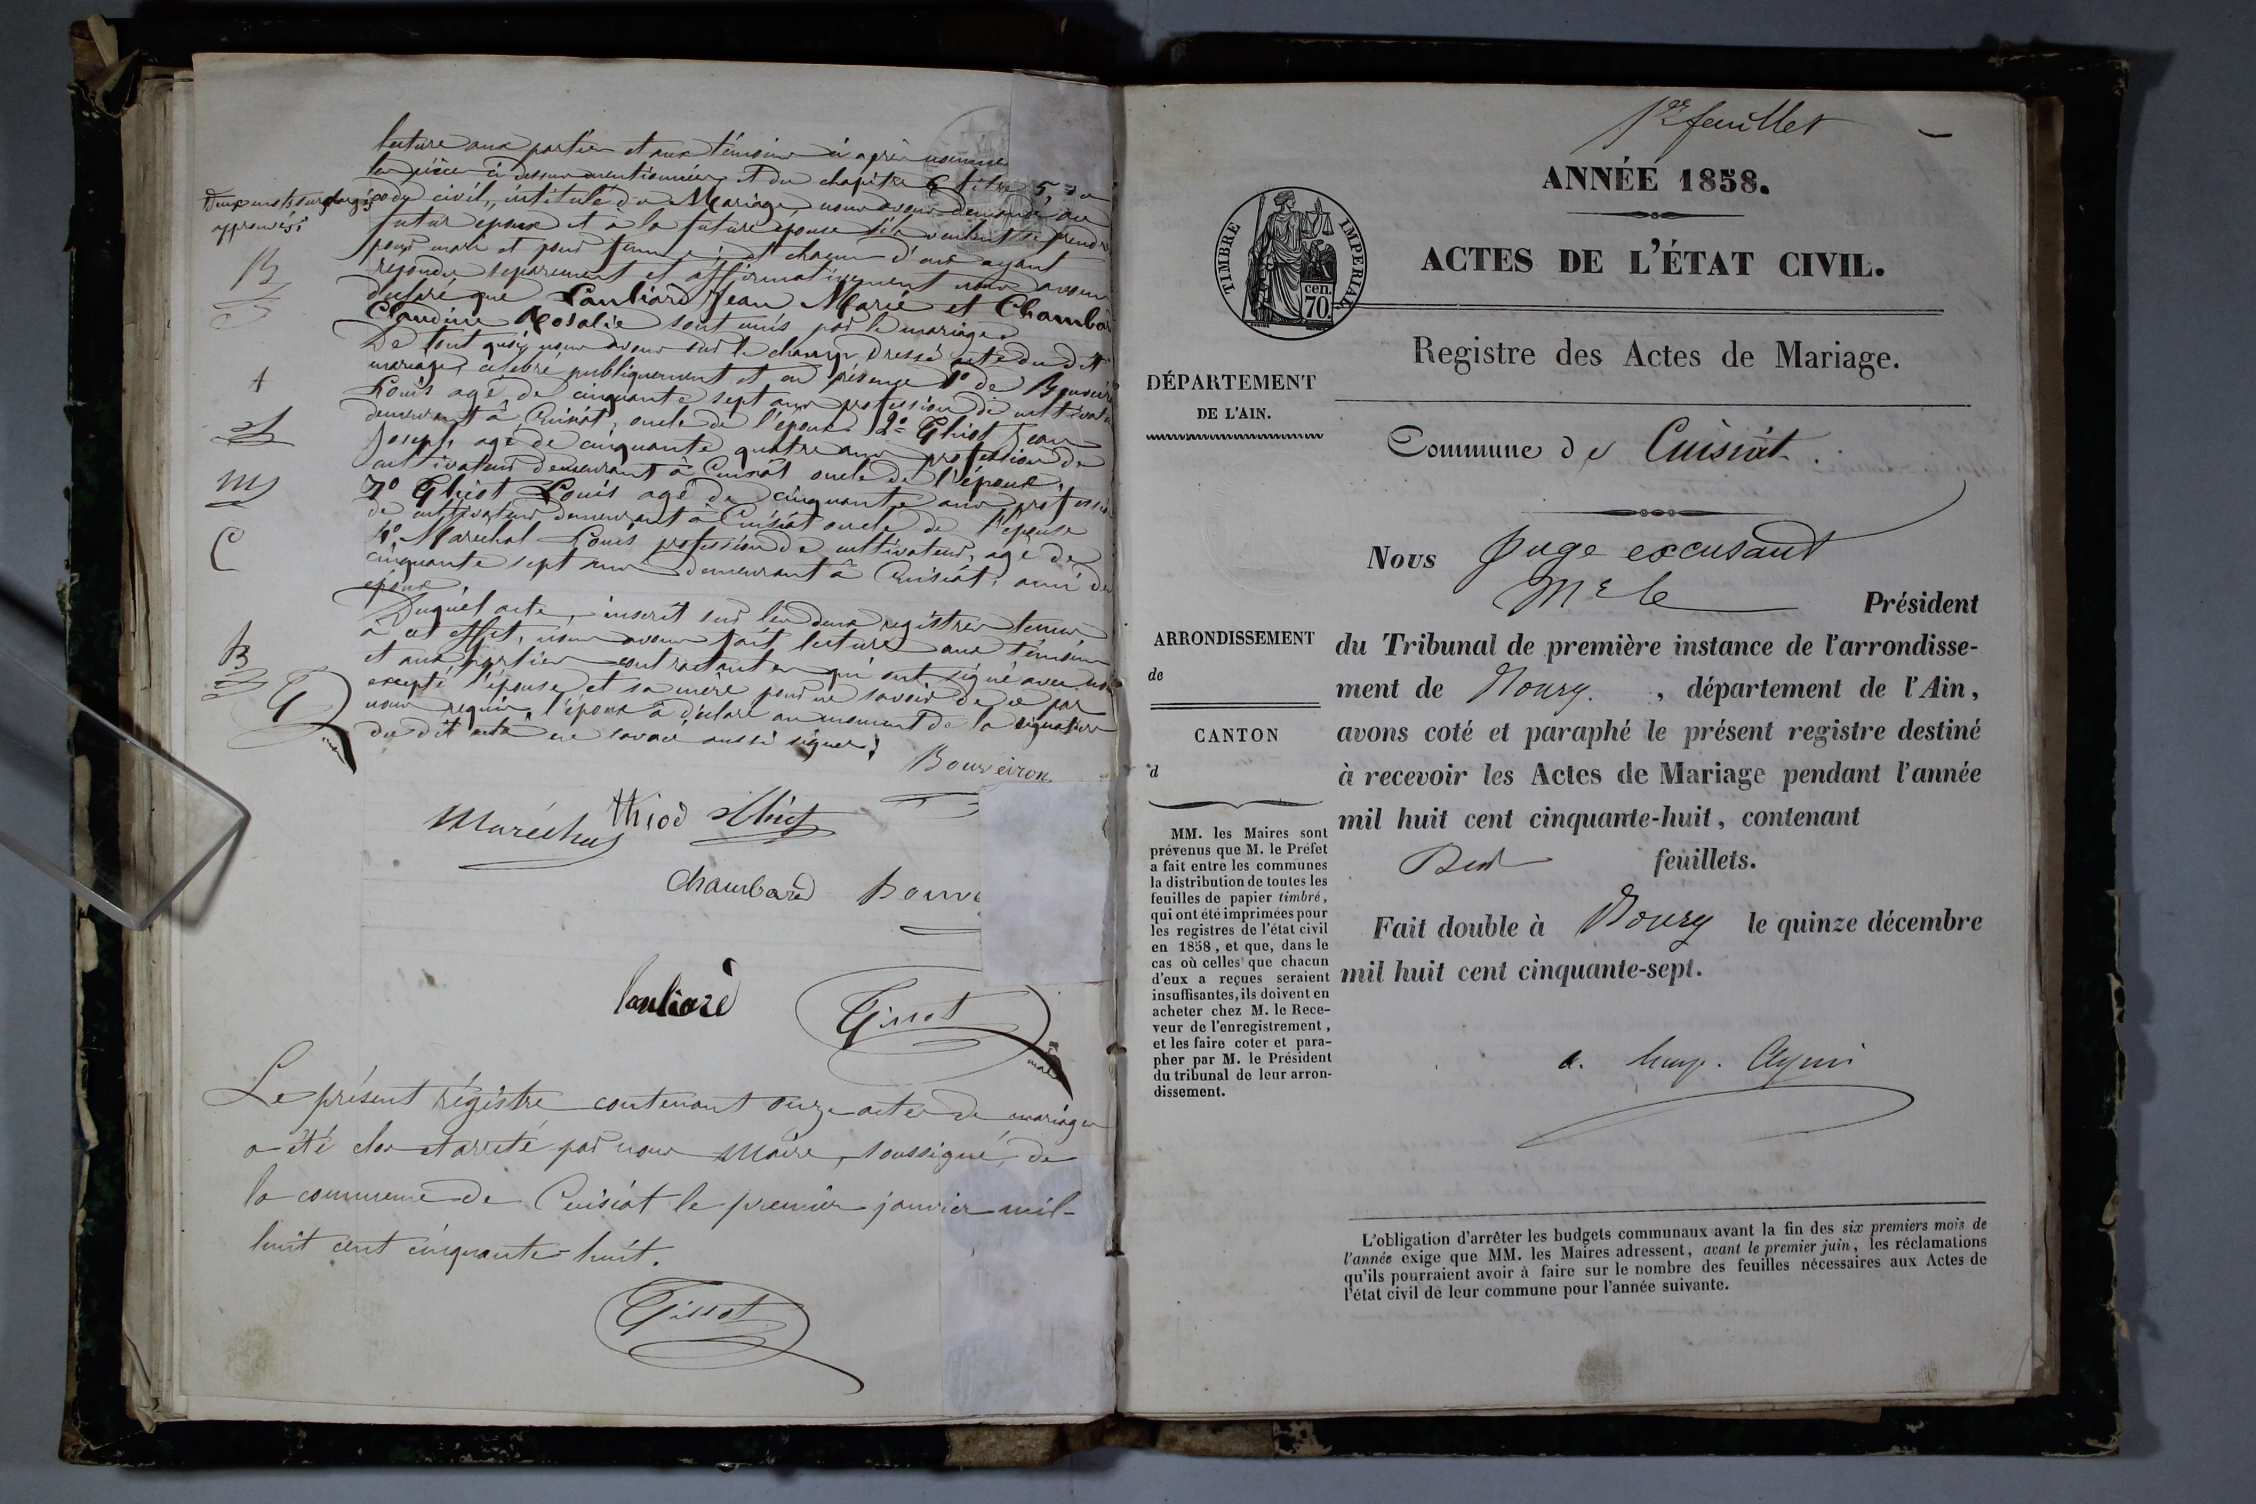 lecture aux parties et aux témoins ci après nommés
les pièces ci dessus mentionnées et du chapitre 6 titre 5, du
code civil, intitulé du Mariage, nous avons demandé au
futur epoux et à la future epouse s'ils veulent se prendre
pour mari et pour femme, et chacun d'eux ayant
repondu separement et affirmativement nous avons
declaré que Lauliard Jean Marie et Chambar
Claudine Rosalie sont unis par le mariage.
De tout quoi nous avons sur le champ dressé acte du dit
mariage, célébré publiquement et en présence 1º de
Louis agé de cinquante sept ans profession de cultivateur
demeurant à Cuisiat, oncle de l'epoux. 2º Ghiot Jean
Joseph, agé de cinquante quatre ans profession de
cultivateur demeurant à Cuisiat oncle de l'épouse.
3º Ghiot Louis agé de cinquante ans profession
de cultivateur demeurant à Cuisiat oncle de l'épouse
4º Marechal Louis profession de cultivateur, agé de
cinquante sept ans demeurant à Cuisiat, ami de
epoux.
Duquel acte, inscrit sur les deux registres tenus
à cet effet, nous avons fait lecture aux témoins
et aux parties contractantes qui ont signé avec nous
excepté l'épouse et sa mère pour ne savoir de ce par
nous requis l'époux a déclaré au moment de la signature
du dit acte ne savoir aussi signer.
approuvés
B
A
M
C
B
Bouveiron
Maréchal
thiod
Chambard
Lauliard
Tissot
Le présent régistre contenant onze actes de mariages
a été clos et arreté par nous Maire, soussigné, de
la commune de Cuisiat le premier janvier mil-
huit cent cinquante-huit.
Tissot
1er feuillet
ANNÉE 1858.
TIMBRE IMPERIAL
cen.
70.
ACTES DE L'ÉTAT CIVIL.
Registre des Actes de Mariage.
DÉPARTEMENT
DE L'AIN.
Commune de Cuisiat.
Nous juge excusant
Mr le Président
ARRONDISSEMENT
de
CANTON
d
du Tribunal de première instance de l'arrondisse-
ment de Bourg. , département de l'Ain,
avons coté et paraphé le présent registre destiné
à recevoir les Actes de Mariage pendant l'année
mil huit cent cinquante-huit, contenant
feuillets.
Fait double à Bourg le quinze décembre
mil huit cent cinquante-sept.
MM. les Maires sont
prévenus que M. le Préfet
a fait entre les communes
la distribution de toutes les
feuilles de papier timbré,
qui ont été imprimées pour
les registres de l'état civil
en 1858, et que, dans le
cas où celles que chacun
d'eux a reçues seraient
insuffisantes, ils doivent en
acheter chez M. le Rece-
veur de l'enregistrement,
et les faire coter et para-
pher par M. le Président
du tribunal de leur arron-
dissement.
L'obligation d'arrêter les budgets communaux avant la fin des six premiers mois de
l'année exige que MM. les Maires adressent, avant le premier juin, les réclamations
qu'ils pourraient avoir à faire sur le nombre des feuilles nécessaires aux Actes de
l'état civil de leur commune pour l'année suivante.